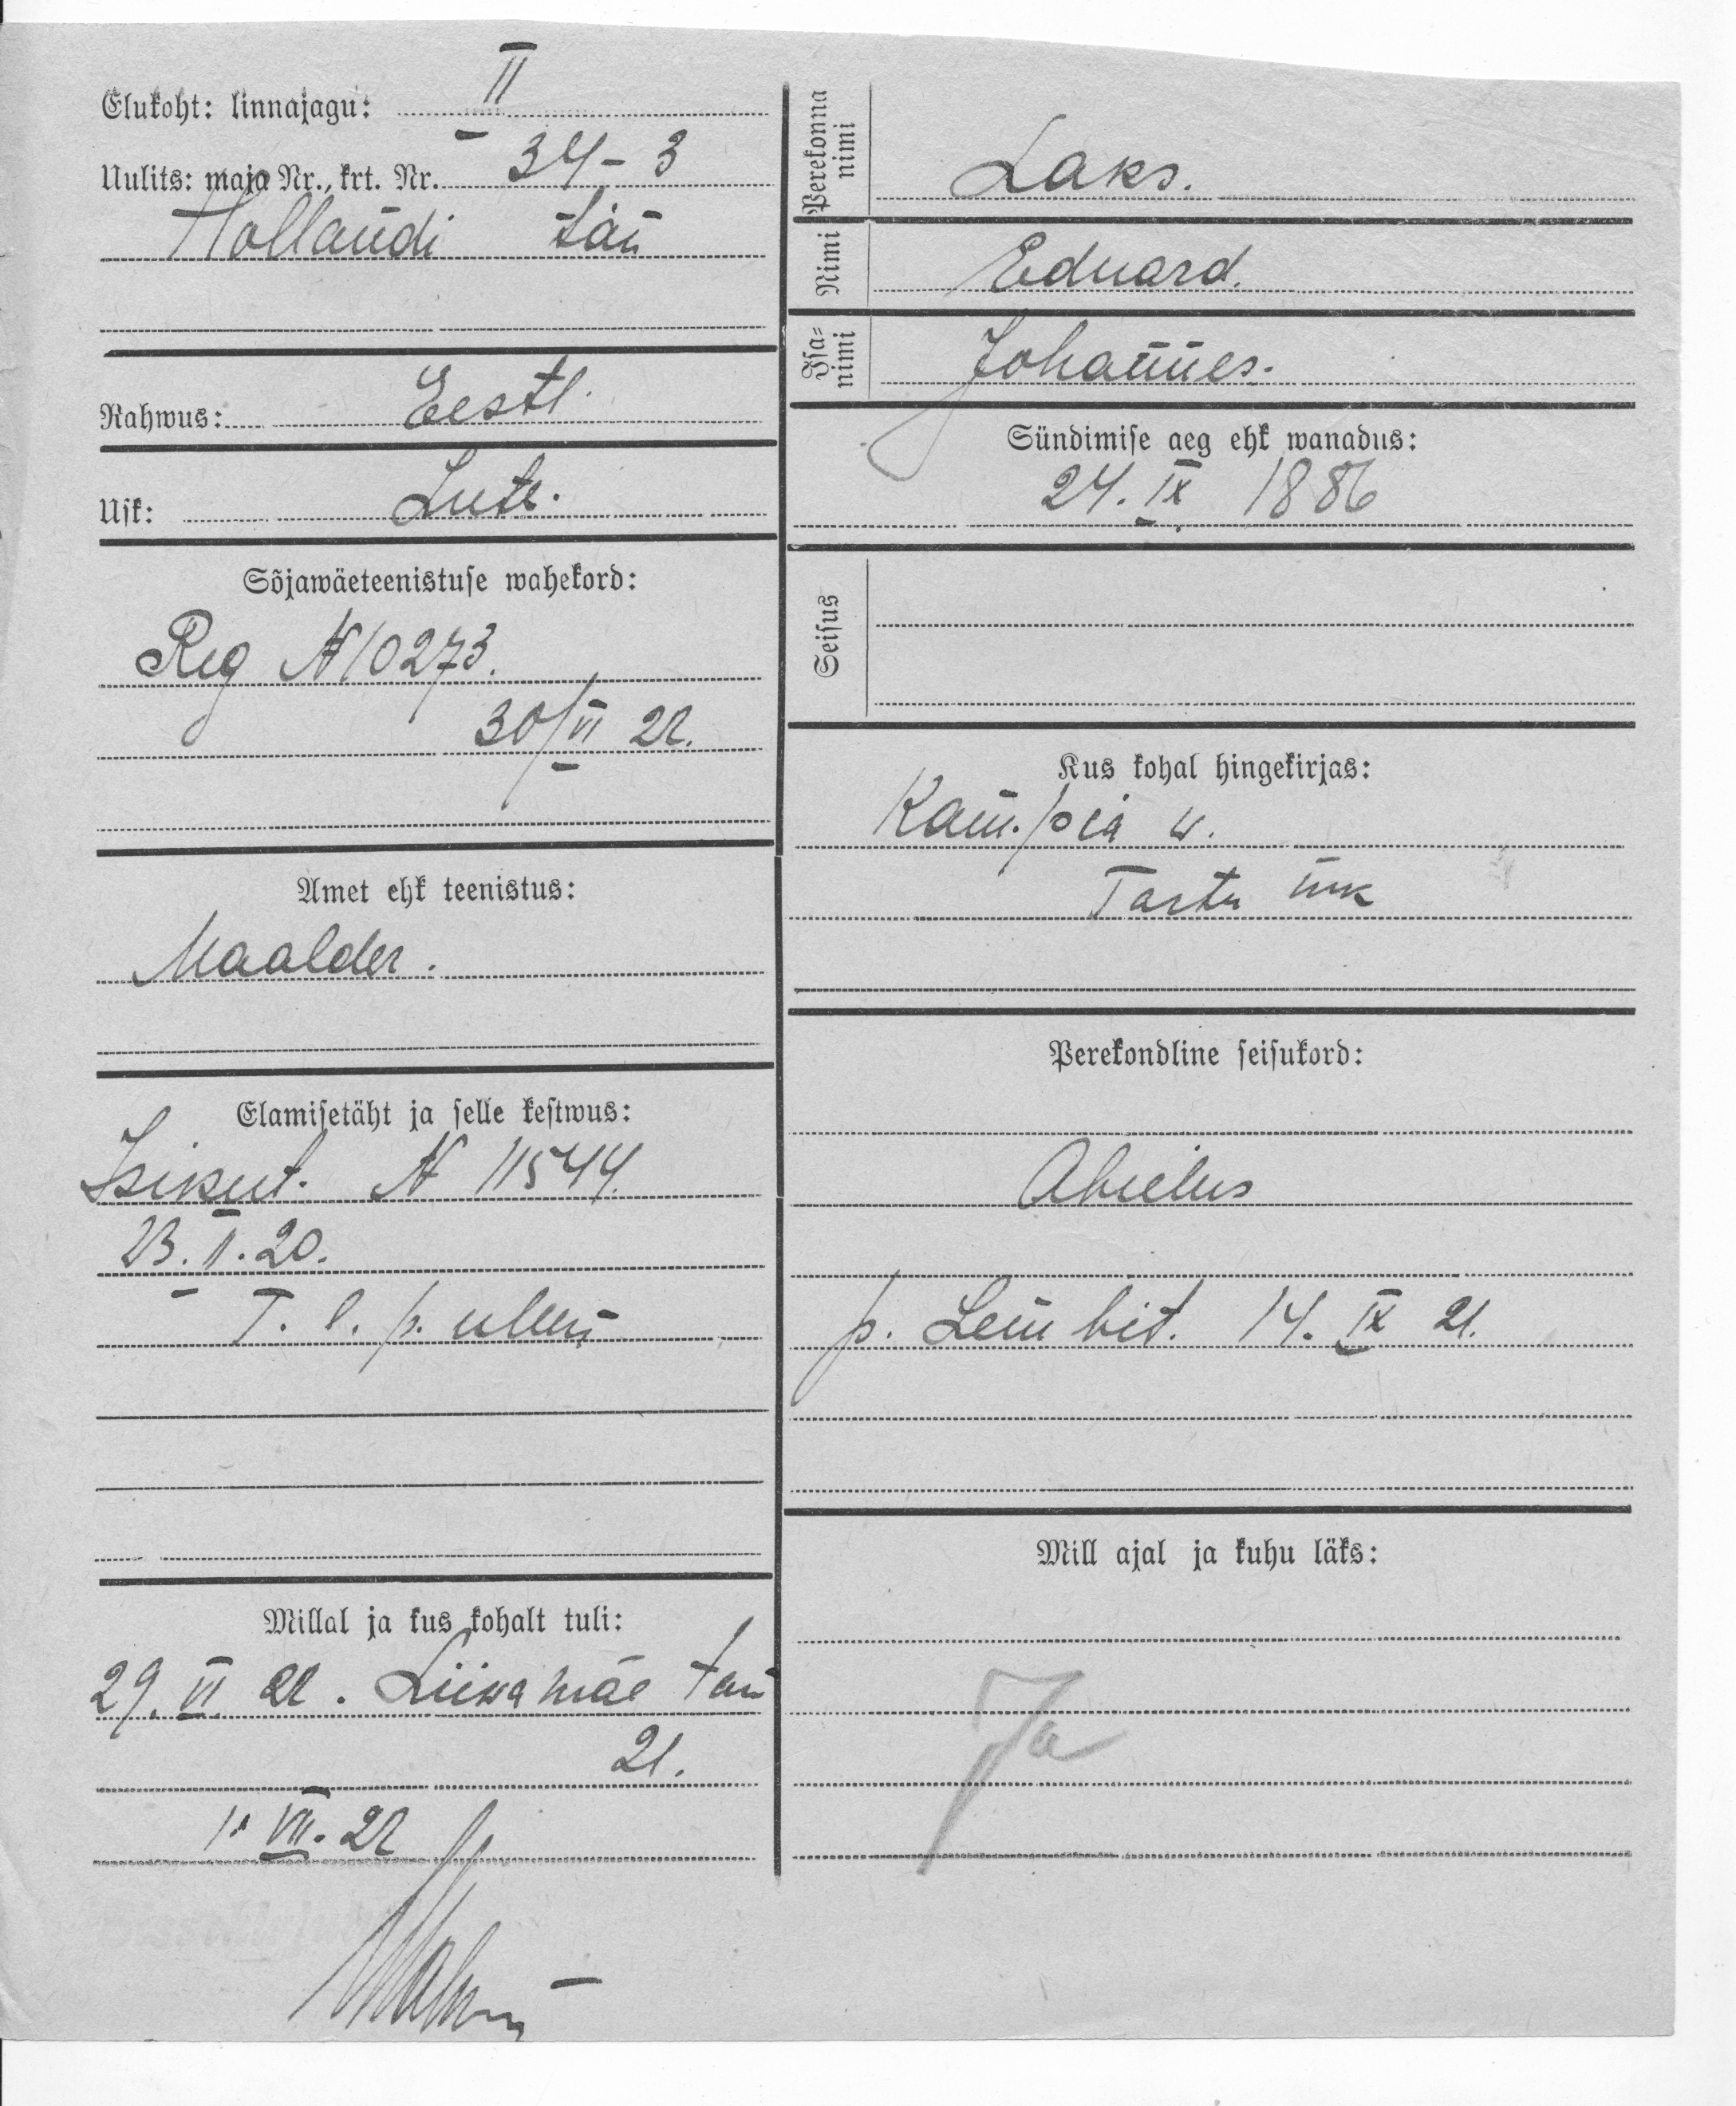 Elukoht: linnajagu: II
Uulits: maja Nr., krt. Nr. 34-3
Hollandi tän
Rahwus: Eestl.
Usk: Lute.
Sõjawäeteenistuse wahekord:
Reg N 10273.
30/VI 22.
Amet ehk teenistus:
Maalder.
Elamisetäht ja selle kestwus:
Isikut. N 11544.
23. II. 20.
T. l. p. ülem
Millal ja kus kohalt tuli:
29. VI 22. Liiwamäe tän
21.
1. VII. 22
Perekonna nimi
Laks.
Nimi
Eduard.
Isa-
nimi
Johannes.
Sündimise aeg ehk wanadus:
24. IX 1886
Seisus
Kus kohal hingekirjas:
Kam̄bja w.
Tartu mk
Perekondline seisukord:
Abielus
p. Lem̄bit. 14. IX 21.
Mill ajal ja kuhu läks:
Ja